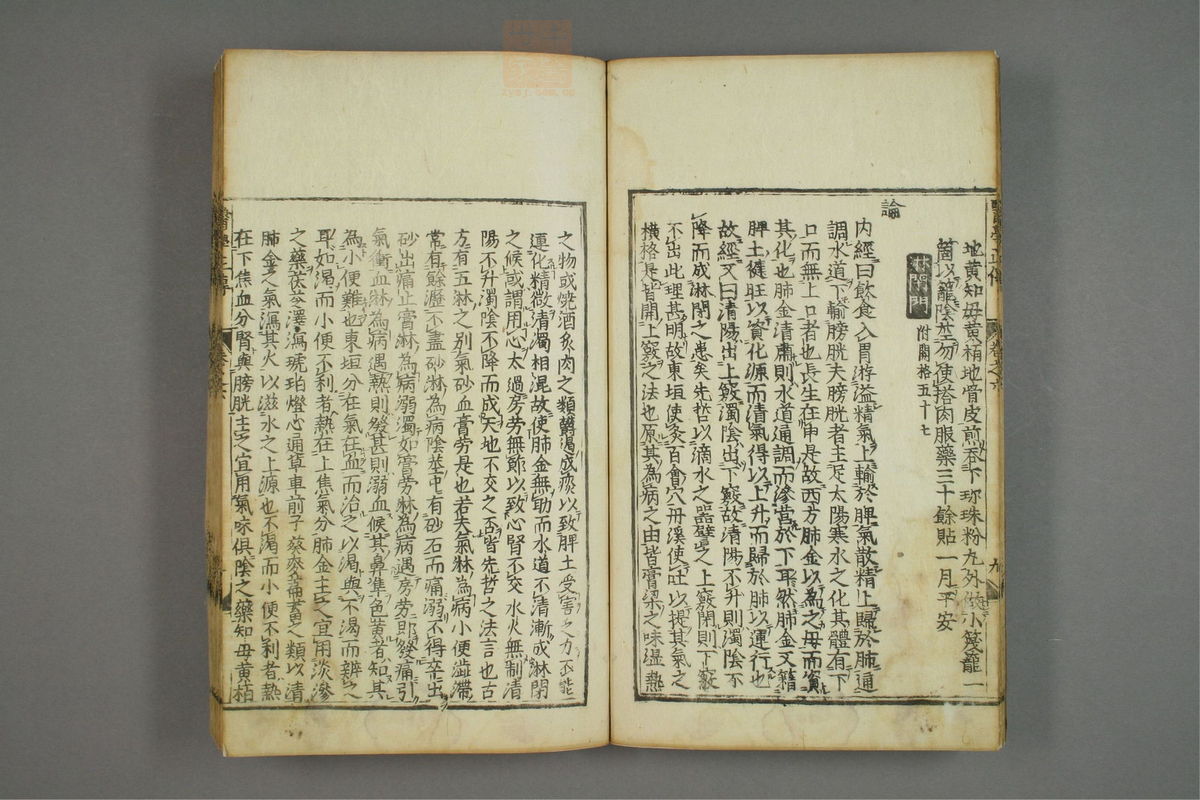 地黄知母黄栢地骨皮煎吞下珎珠粉丸外做小篾籠
一箇以籠陰莖勿使搭肉服藥三十餘貼一月平安
淋閉門 附關格五十七
論
內經曰飲食入胃游溢精氣上輸於脾氣散精上歸於肺通
調水道下輸膀胱夫膀胱者主足太陽寒水之化其體有下
口而無上口者也長生在申是故西方肺金以為之母而資
其化也肺金清肅則水道通調而滲營於下耳然肺金又籍
脾土健旺以資化源而清氣得以上升而歸於肺以運行也
故經又曰清陽出上竅濁陰出下竅故清陽不升則濁陰不
降而成淋閉之患矣先哲以滴水之器譬之上竅閉則下竅
不出此理甚明故東垣使灸百會穴丹溪使吐以提其氣之
橫格是皆開上竅之法也原其為病之由皆膏梁之味濕熱
之物或燒酒炙肉之類欝遏成痰以致脾土受害乏力不能
運化精微清濁相混故使肺金無助而水道不清漸成淋閉
之候或謂用心太過房勞無節以致心腎不交水火無制清
陽不升濁陰不降而成天地不交之否皆先哲之法言也古
方有五淋之別氣砂血膏勞是也若夫氣淋為病小便澁滯
常有餘瀝不盡砂淋為病陰莖中有砂石而痛溺不得卒出
砂出痛止膏淋為病溺濁如膏勞淋為病遇房勞即發痛引
氣衝血淋為病遇熱則發甚則溺血候其鼻準色黄者知其
為小便難也東垣分在氣在血而治之以渴與不渴而辨之
耳如渴而小便不利者熱在上焦氣分肺金主之宜用淡滲
之藥茯苓澤瀉琥珀燈心通草車前子蘧麥萹蓄之類以清
肺金之氣瀉其火以滋水之上源也不渴而小便不利者熱
在下焦血分腎與膀胱主之宜用氣味俱陰之藥知母黄栢
醫學正傳 卷之六 九